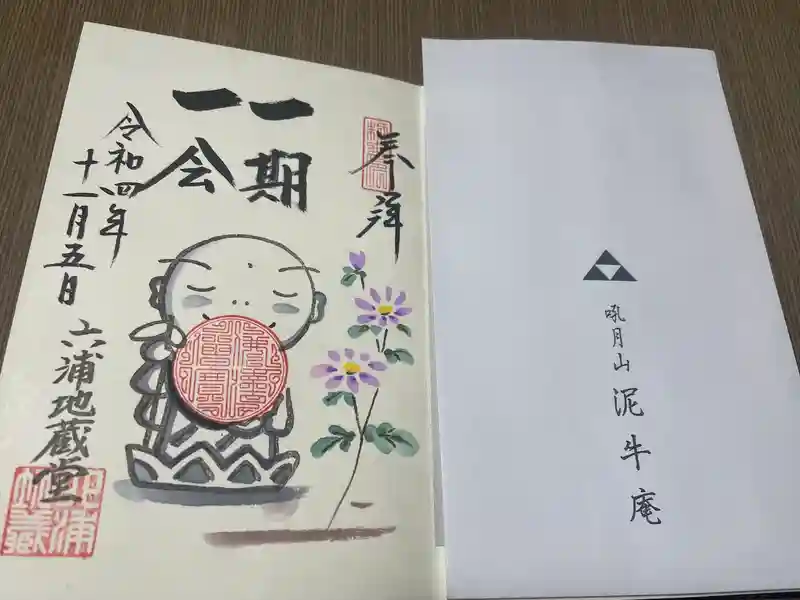 奉拝
一期
一会
令和四年
十一月五日
六浦地蔵堂
吼月山 泥牛庵